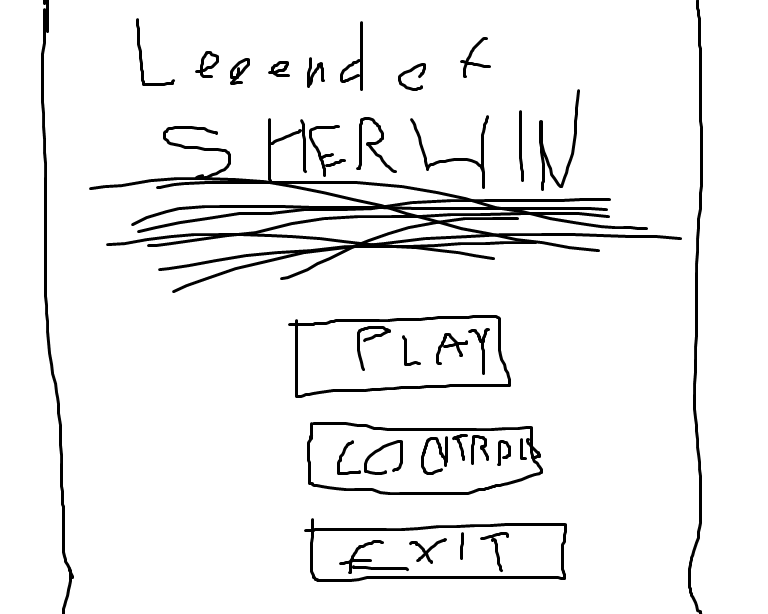 Legend of
SHERWIN
PLAY
CONTROLS
EXIT